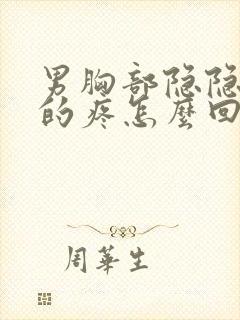 男胸部隐隐
的疼怎麼回
周華生